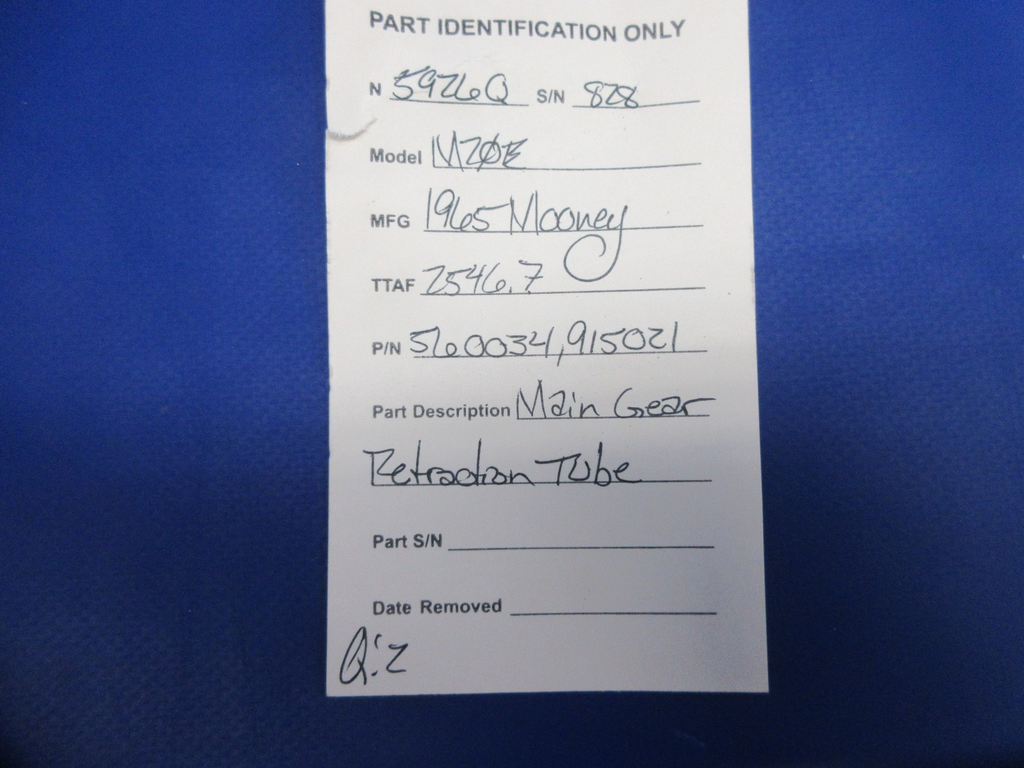 PART IDENTIFICATION ONLY
N 5926Q S/N 828
Model M20E
MFG 1965 Mooney
TTAF 2546.7
P/N 560034, 915021
Part Description Main Gear
Retraction Tube
Part S/N
Date Removed
Q:2